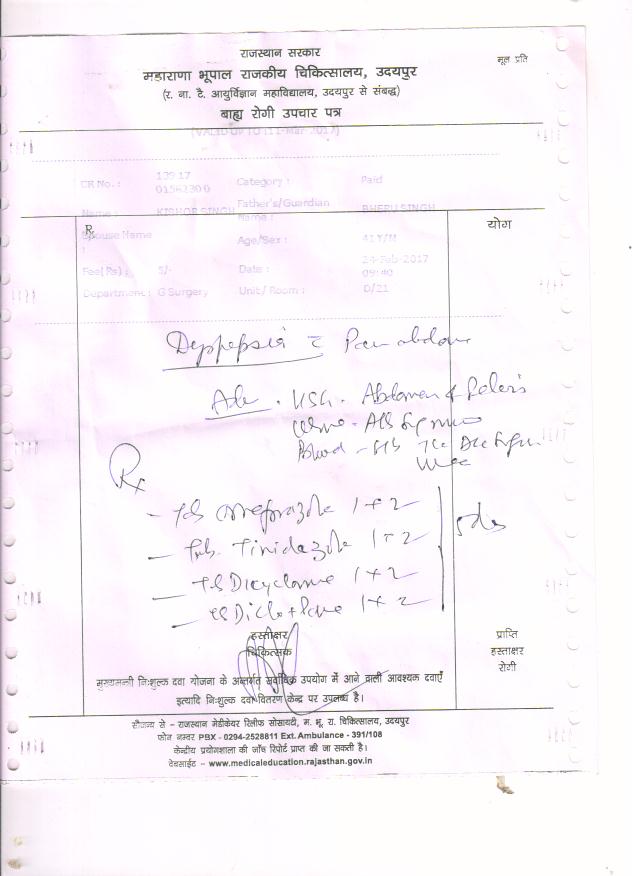 राजस्थान सरकार
मूल प्रति
महाराणा भूपाल राजकीय चिकित्सालय, उदयपुर
(र. ना. टै. आयुर्विज्ञान महाविद्यालय, उदयपुर से संबद्ध)
बाह्य रोगी उपचार पत्र
(VALID UP TO :11-Mar 2017)
CR No. : 13917 01562300 Category : Paid
Name : KISHOR SINGH Father's/Guardian Name : BHERU SINGH
Rx योग
Spouse Name : Age/Sex : 41 Y/M
Fee(Rs) : 5/- Date : 24-Feb-2017 09:40
Department : G Surgery Unit/ Room : D/21
Dyspepsia c Pain abdom
Adv . USG . Abdomen & Pelvis
Urine -
Blood - Hb Tlc Dlc
Rx
- Tab Omeprazole 1 + 2
- Tab. Tinidazole 1 + 2
- Tab Dicyclomine 1 + 2
- Diclo + Para 1 + 2
5ds
हस्ताक्षर
चिकित्सक
प्राप्ति
हस्ताक्षर
रोगी
मुख्यमन्त्री निःशुल्क दवा योजना के अन्तर्गत सर्वाधिक उपयोग में आने वाली आवश्यक दवाएँ
इत्यादि निःशुल्क दवा वितरण केन्द्र पर उपलब्ध है।
सौजन्य से - राजस्थान मेडीकेयर रिलीफ सोसायटी, म. भू. रा. चिकित्सालय, उदयपुर
फोन नम्बर PBX - 0294-2528811 Ext. Ambulance - 391/108
केन्द्रीय प्रयोगशाला की जाँच रिपोर्ट प्राप्त की जा सकती है।
वेबसाईट - www.medicaleducation.rajasthan.gov.in